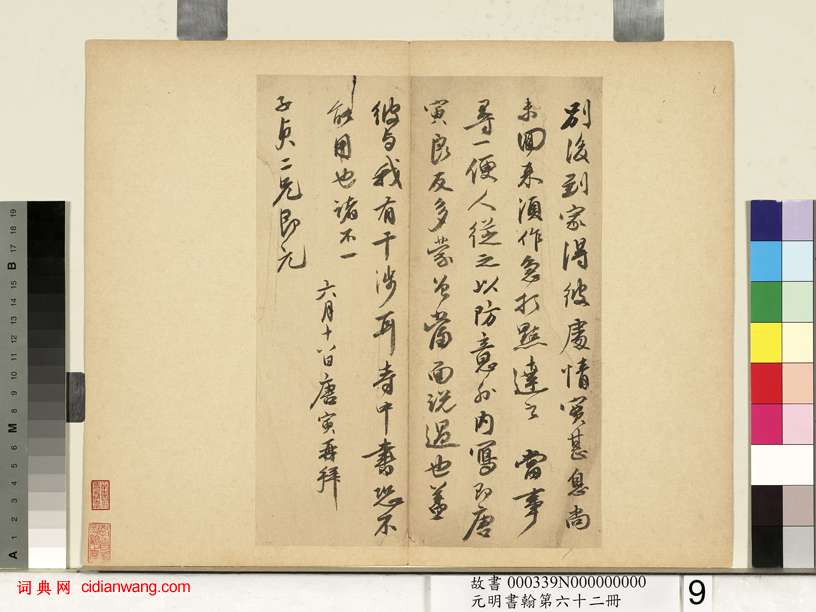 別後到家得彼處情實甚急尚
未回来須作急打點達之當事
尋一便人從之以防意外內寫即唐
寅良友多蒙公當面說過也蓋
彼与我有干涉耳寺中書恐不
能用也諸不一
六月十八日唐寅再拜
子貞二兄即元
A 1 2 3 4 5 6 M 8 9 10 11 12 13 14 15 B 17 18 19
词典网 cidianwang.com
故書 000339N000000000
元明書翰第六十二冊
9